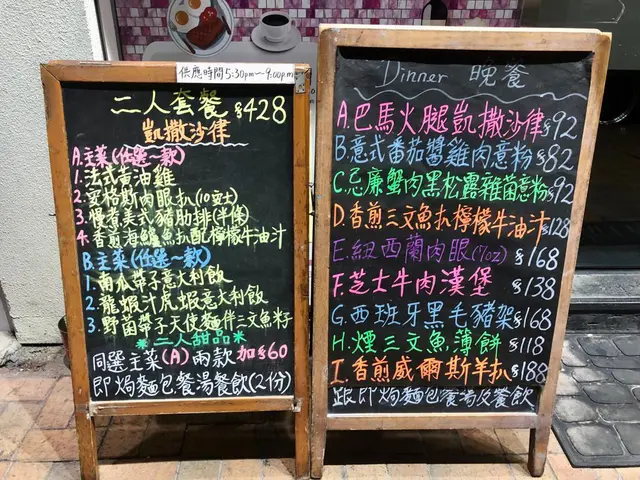 供應時間5:30pm~9:00pm
二人套餐 $428
凱撒沙律
A.主菜(任選一款)
1.法式黃油雞
2.安格斯肉眼扒(10安士)
3.慢煮美式豬肋排(半條)
4.香煎海鱸魚扒配檸檬牛油汁
B.主菜(任選一款)
1.南瓜帶子意大利飯
2.龍蝦汁虎蝦意大利飯
3.野菌帶子天使麵伴三文魚籽
*二人甜品*
同選主菜(A)兩款加$60
即焗麵包餐湯餐飲(2份)
Dinner 晚餐
A.巴馬火腿凱撒沙律$92
B.意式番茄醬雞肉意粉$82
C.忌廉蟹肉黑松露雜菌意粉$92
D.香煎三文魚扒檸檬牛油汁$128
E.紐西蘭肉眼(7oz) $168
F.芝士牛肉漢堡 $138
G.西班牙黑毛豬架$168
H.煙三文魚薄餅 $118
I.香煎威爾斯羊扒$188
跟即焗麵包餐湯及餐飲